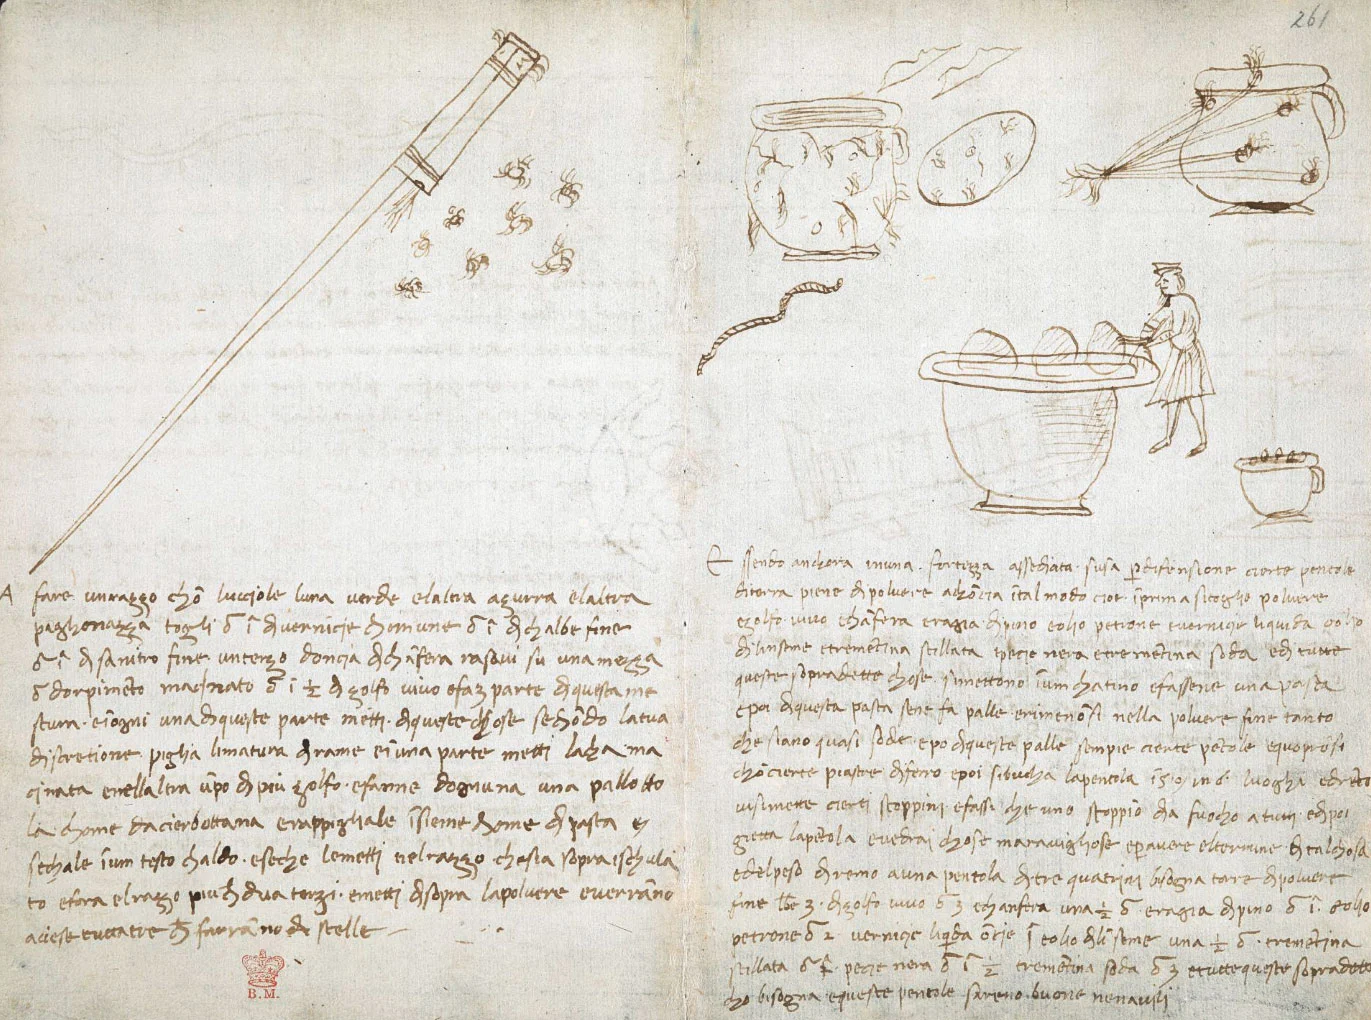 261
A fare unrazzo chō lucciole luna verde elaltra azurra elaltra
paghonazza togli ō i dvernicie chomune ō i dchalbe fine
ō i di sanitro fine unterzo doncia dchāfera rasavi su una mezza
ō dorpimēto macinato ō i ½ di zolfo vivo efa 3 parte di questa me
stura. eiogni una diqueste parte metti. diqueste chose sechōdo latua
discretione piglia limatura drame eiuna parte metti la ma
cinata enellaltra ūpo di piu zolfo. efanne dogniuna una pallotto
la chome dacierbottana erappigliale isieme chome di pasta
sechale ium testo chaldo. eseche lemetti nelrazzo chesia sopra ischula
to efora elrazzo piu dua terzi. emetti disopra lapolvere everrāno
aciese tuttatre farrāno di stelle
B.M.
Essendo anchora inuna. fortezza assediata. susa perditensione cierte pentole
diterra piene dipolvere achōcia ital modo cioe. iprima sitoglie polvere
ezolfo. vivo echāfera eragia dipino eolio petrone evernicie liquida eolio
dilinseme etremētina stillata epecie nera etremētina soda edi tutte
queste sopradette chose. simettono ium chatino efassene una pasta
epoi diquesta pasta sene fa palle erimenōsi nella polvere fine tanto
che siano quasi sode. epo diqueste palle sempie cierte pētole equoprōsi
chō cierte piastre diferro epoi sibucha lapentola i 5 o in 6 luoghi edrēto
visimette cierti stoppini efassi che uno stoppio dia fuocho atutti edipoi
gietta lapētola evedrai chose maravigliose eperavere eltermine. di talchosa
edelpeso diremo auna pentola ditre quatrini bisogna torre dipolvere
fine lbe 3. dizolfo vivo ō 3 echanfera una ½ ō eragia dipino ō i. eolio
petrone ō 2 vernicie liquida ōcie i eolio dili seme una ½ ō. tremētina
stillata ō i. pecie nera ō i ½ tremētina soda ō 3 etuttequeste sopradette
cho bisogna equeste pentole sareno buone nenavili